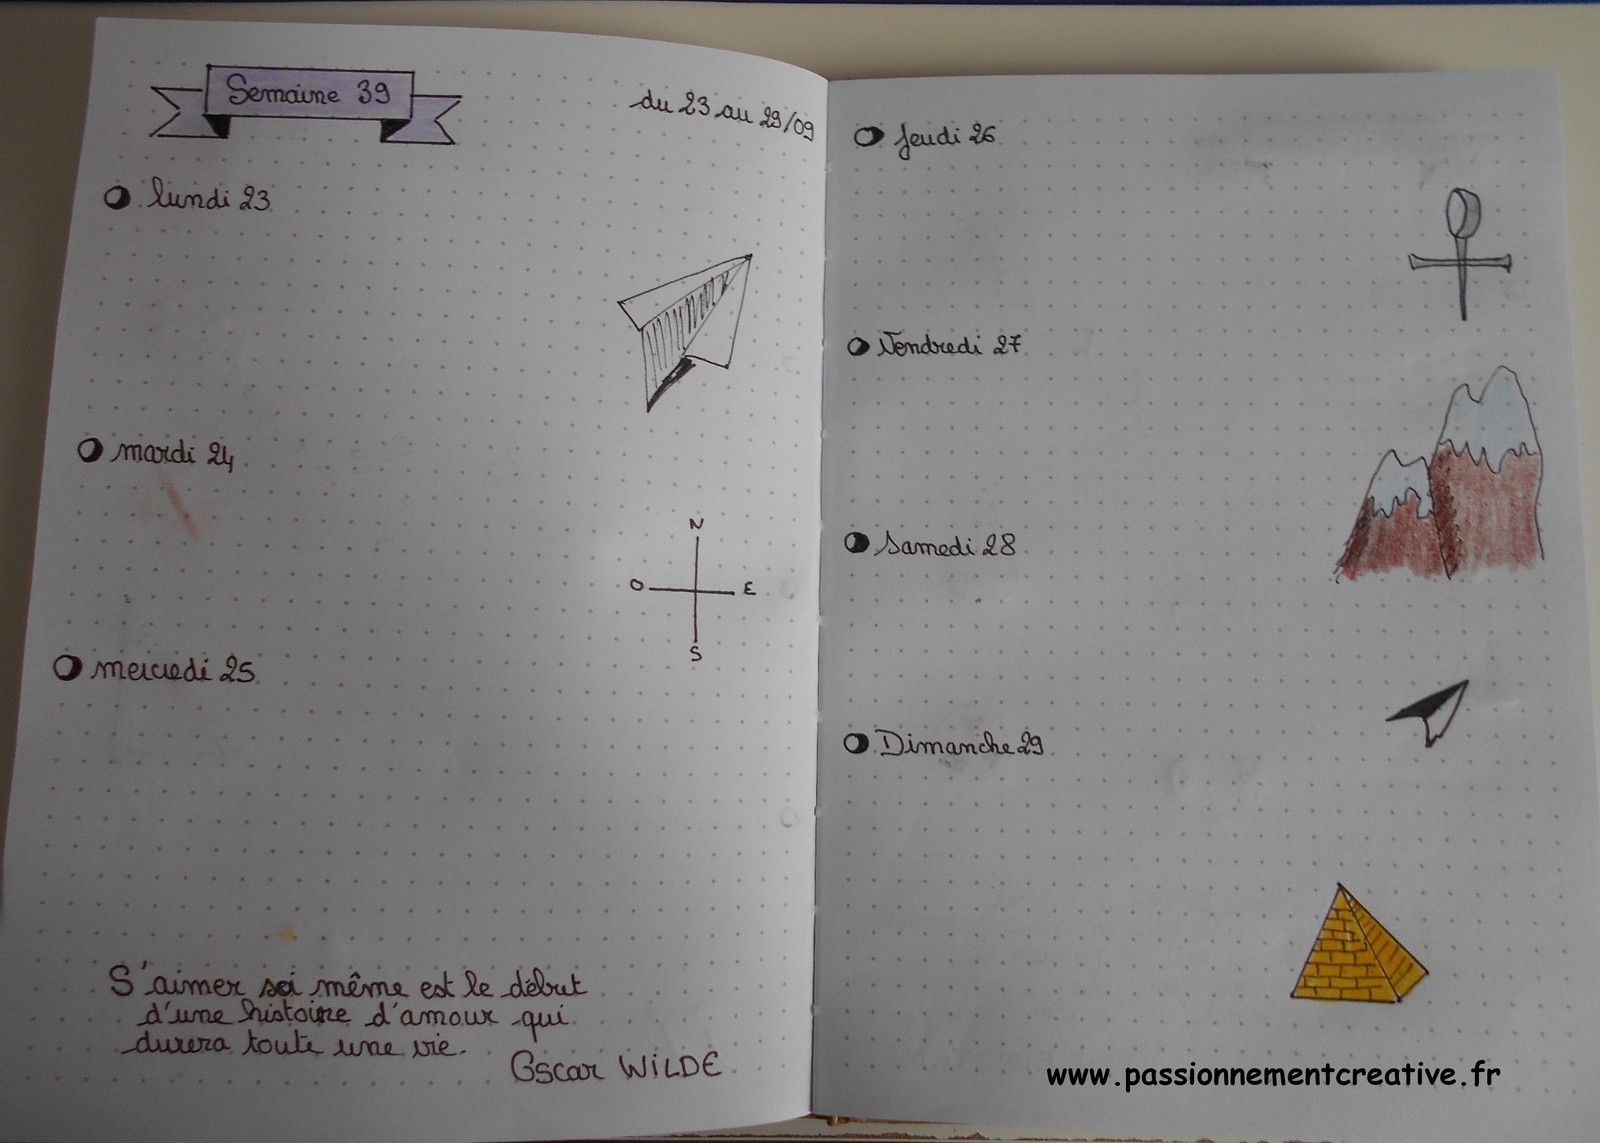 Semaine 39
du 23 au 29/09
lundi 23
mardi 24
N
O E
S
mercredi 25
S'aimer soi même est le début
d'une histoire d'amour qui
durera toute une vie.
Oscar WiLDE
Jeudi 26
Vendredi 27
Samedi 28
Dimanche 29
www.passionnementcreative.fr